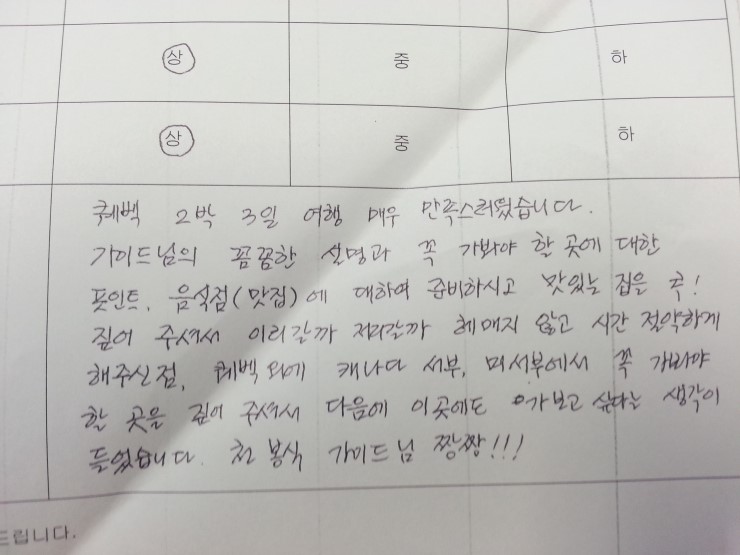 상 중 하
상 중 하
퀘벡 2박 3일 여행 매우 만족스러웠습니다.
가이드님의 꼼꼼한 설명과 꼭 가봐야 할 곳에 대한
포인트, 음식점(맛집)에 대하여 준비하시고 맛있는 집을 콕!
짚어 주셔서 이리갈까 저리갈까 헤매지 않고 시간 절약하게
해주신점, 퀘벡 외에 캐나다 서부, 미서부에서 꼭 가봐야
할 곳을 짚어 주셔서 다음에 이곳에도 가보고 싶다는 생각이
들었습니다. 천봉식 가이드님 짱짱!!!
드립니다.